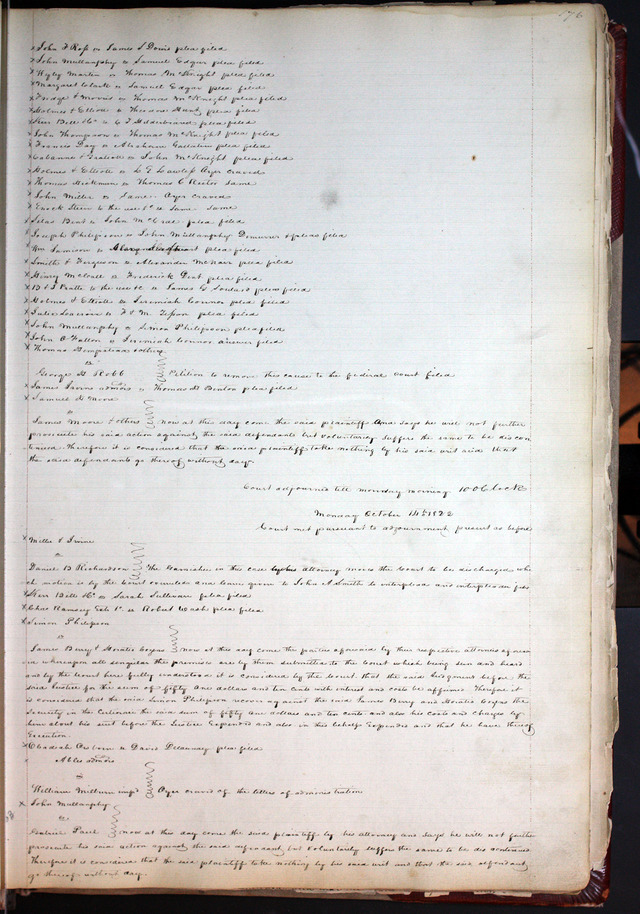 176
x John F Ross vs James S Davis plea filed
x John Mullanphy vs Samuel Edgar plea filed
x Wyly Martin vs Thomas McKnight plea filed
x Margaret Clark vs Samuel Edgar plea filed
x Fridge & Morris vs Thomas McKnight plea filed
x Holmes & Elliott vs Theodore Hunt plea filed
x Kerr Bell & Co vs C J Hildebrand plea filed
x John Thompson vs Thomas McKnight plea filed
x Francis Day vs Abraham Gallatin plea filed
x Cabanne & vs John McKnight plea filed
x Holmes & Elliott vs L E Lawless Oyer craved
x Thomas vs Thomas C Rector same
x John Miller vs Same Oyer craved
x Enoch Steen to the use &c vs Same Same
x Silas Bent vs John McCrae plea filed
x Joseph Philipson vs John Mullanphy Demurrer & pleas filed
x Wm Jamison vs Alexander Stuart plea filed
x Smith & Ferguson vs Alexander McNair plea filed
x Henry McCall vs Frederick Dent plea filed
x B & J Pratte to the use &c vs James G Soulard pleas filed
x Holmes & Elliott vs Jeremiah Connor plea filed
x Julie vs F & M plea filed
x John Mullanphy vs Simon Philipson plea filed
x John O Fallon vs Jeremiah Connor answer filed
x Thomas Hempstead & others
vs
George H Robb Petition to remove this cause to the federal court filed
x James Irvins admors vs Thomas H Benton plea filed
x Samuel D Moore
vs
James Moore & others now at this day come the said plaintiff and says he will not further
prosecute his said action against the said defendants but voluntarily suffers the same to be discon
tinued Therefore it is considered that the said plaintiff take nothing by his said writ and that
the said defendants go thereof without day
Court adjourned till monday morning 10 OClock
Monday October 14th 1822
Court met pursuant to adjournment present as before
x Miller & Irvine
vs
Daniel B Richardson The Garnishee in this case by his attorney moves the Court to be discharged whi
ch motion is by the Court overruled and leave given to John A Smith to interplead and interpleader filed
x Kerr Bell &Co vs Sarah Sullivan plea filed
x Chas Ramsey Exts vs Robert Wash plea filed
x Simon Philipson
vs
James Berry & Horatio Cozens now at this day come the parties aforesaid by their respective attornies afores
aid whereupon all singular the premises are by them submitted to the Court which being seen and heard
and by the Court here fully understood it is considered by the Court that the said Judgment before the
said Justice for the sum of fifty one dollars and ten cents with interest and costs be affirmed Therefore it
is considered that the said Simon Philipson recover against the said James Berry and Horatio Cozens the
Security in the Certiorari the said sum of fifty one dollars and ten cents and also his costs and charges by
him about his suit before the Justice Expended and also in this behalf Expended and that he have thereof
Execution
x Obadiah Osborn vs Davis Delaunay plea filed
x Ables admors
vs
William Milburn impd Oyer craved of the letters of administration
x John Mullanphy
vs
Gabriel Paul now at this day come the said plaintiff by his attorney and says he will not further
prosecute his said action against the said defendant but voluntarily suffers the same to be discontinued
Therefore it is considered that the said plaintiff take nothing by his said writ and that the said defendant
go thereof without day